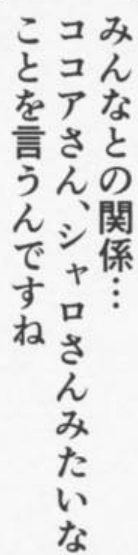 みんなとの関係…
ココアさん、シャロさんみたいな
ことを言うんですね